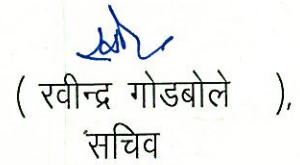 ( रवीन्द्र गोडबोले ),
सचिव